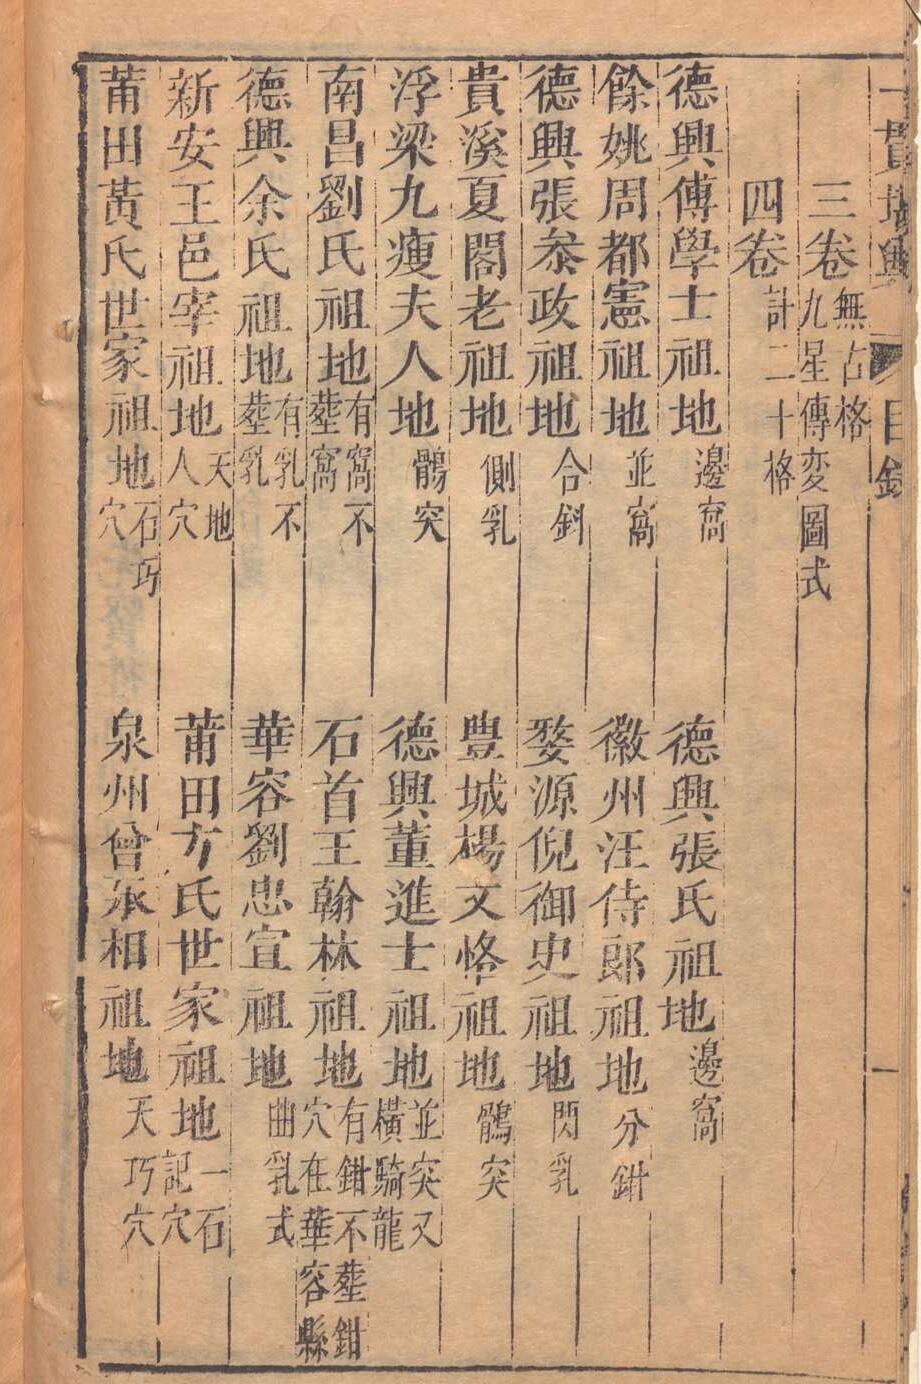 一貫堪輿 目錄 一
三卷 無占格 九星傳変圖式
四卷 計二十格
德興傅學士祖地 邊窩
德興張氏祖地 邊窩
餘姚周都憲祖地 並窩
徽州汪侍郎祖地 分鉗
德興張叅政祖地 合鈄
婺源倪御史祖地 閃乳
貴溪夏閣老祖地 側乳
豊城楊文恪祖地 鶻突
浮梁九瘦夫人地 鶻突
德興董進士祖地 並突又橫騎龍
南昌劉氏祖地 有窩不塟窩
石首王翰林祖地 有鉗不塟鉗穴在華容縣
德興余氏祖地 有乳不塟乳
華容劉忠宣祖地 曲乳式
新安王邑宰祖地 天地人穴
莆田方氏世家祖地 一石記穴
莆田黃氏世家祖地 石巧穴
泉州曾丞相祖地 天巧穴